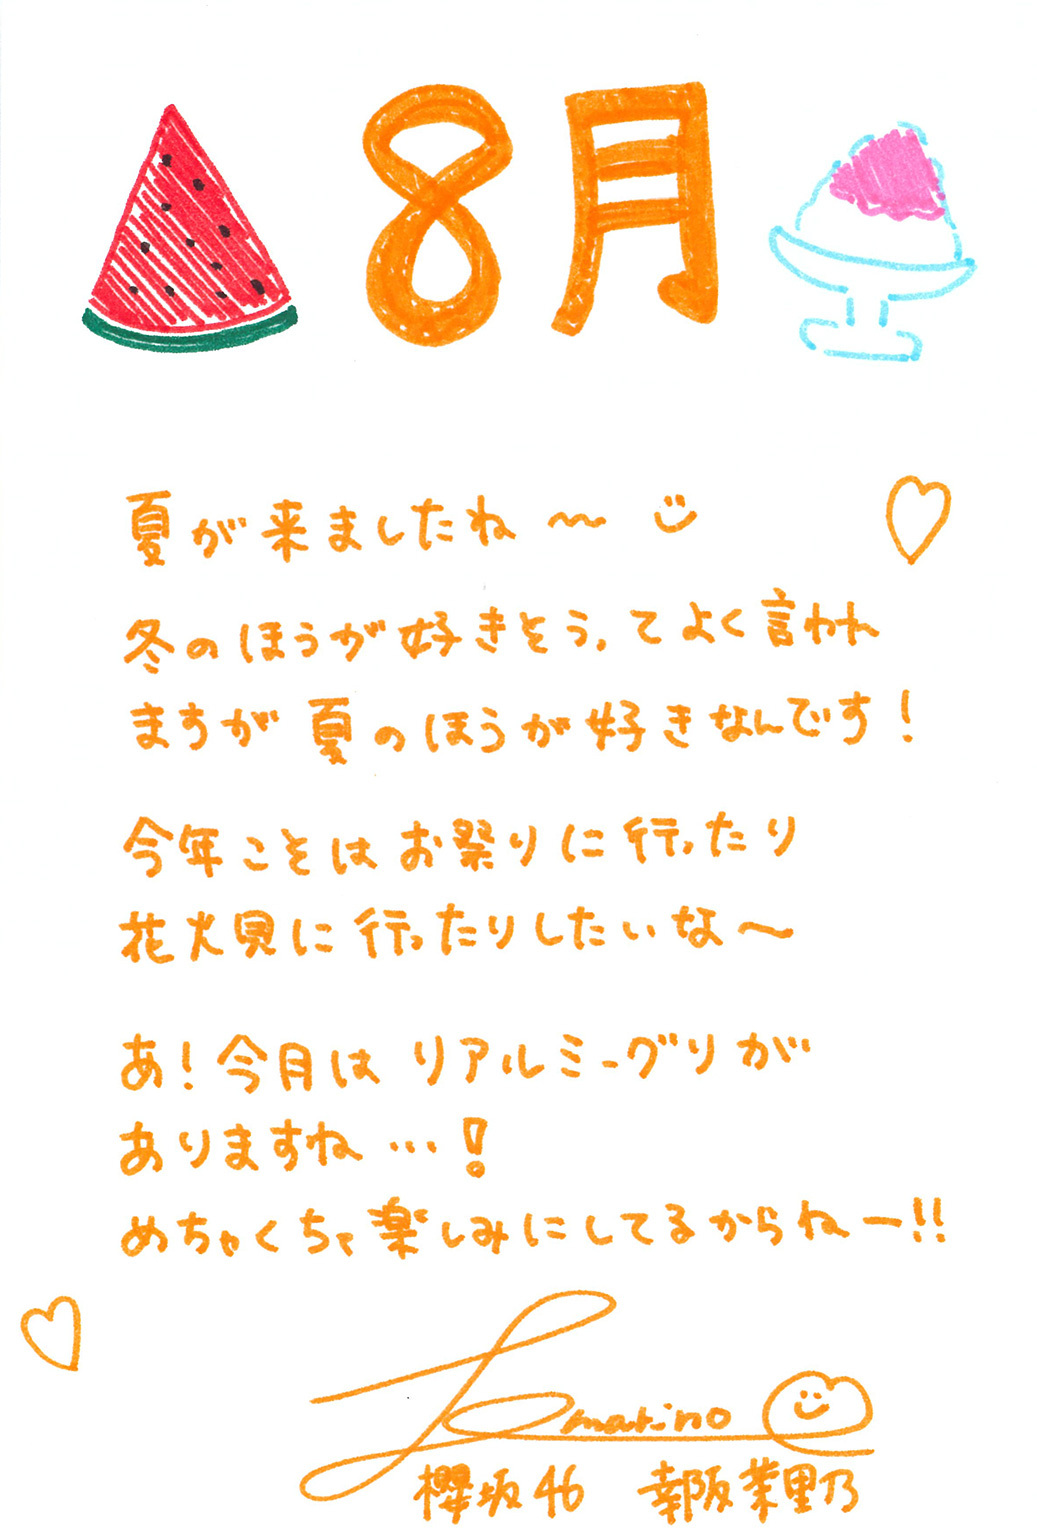 8月
夏が来ましたね〜
冬のほうが好きそう、てよく言われ
ますが夏のほうが好きなんです!
今年ことはお祭りに行ったり
花火見に行ったりしたいな〜
あ!今月は リアルミーグリが
ありますね…!
めちゃくちゃ楽しみにしてるからねー!!
marino
櫻坂46 幸阪茉里乃